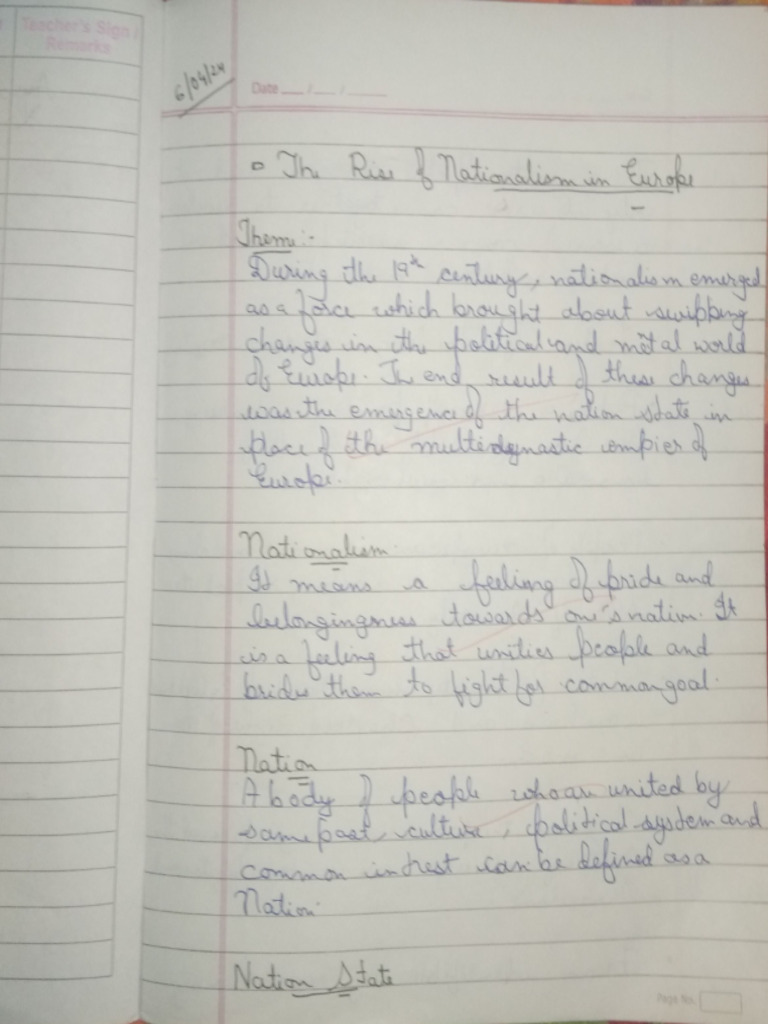 Teacher's Sign /
Remarks
6/04/24
Date ___ / ___ / ______
The Rise of Nationalism in Europe
Theme:-
During the 19th century, nationalism emerged
as a force which brought about swipping
changes in the political and metal world
of Europe. The end result of these changes
was the emergence of the nation state in
place of the multi dynastic empier of
Europe.
Nationalism
It means a feeling of pride and
belongingness towards one's nation. It
is a feeling that unities people and
brides them to fight for common goal.
Nation
A body of people who are united by
same past culture, political system and
common intrest can be defined as a
Nation.
Nation State
Page No.